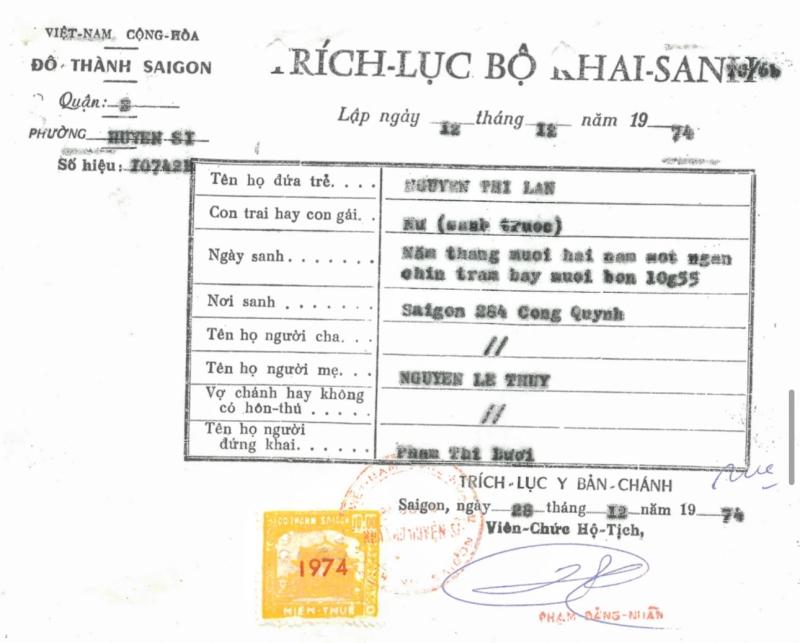 VIỆT-NAM CỘNG-HÒA
ĐÔ-THÀNH SAIGON
Quận: 2
PHƯỜNG HUYEN SI
Số hiệu: I0742B
TRÍCH-LỤC BỘ KHAI-SANH
Lập ngày 12 tháng 12 năm 1974
Tên họ đứa trẻ. . . . NGUYEN THI LAN
Con trai hay con gái. . Nu (sanh truoc)
Ngày sanh . . . . . . . Năm thang muoi hai nam mot ngan
chin tram bay muoi bon 10g55
Nơi sanh . . . . . . . Saigon 284 Cong Quynh
Tên họ người cha. . . //
Tên họ người mẹ. . . . NGUYEN LE THUY
Vợ chánh hay không
có hôn-thú . . . . . //
Tên họ người
đứng khai. . . . . . Pham Thi Lươi
TRÍCH-LỤC Y BẢN-CHÁNH
Saigon, ngày 28 tháng 12 năm 1974
Viên-Chức Hộ-Tịch,
1974
NIÊM-THUẾ
PHẠM ĐĂNG-NHUẦN